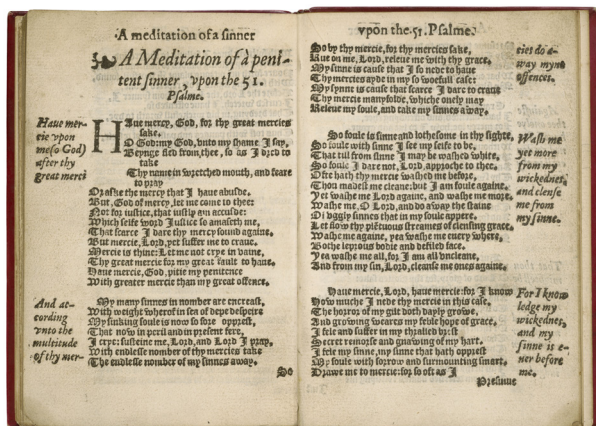 A meditation of a sinner
A Meditation of à peni-
tent sinner, vpon the 51.
Psalme.
Haue mer-
cie vpon
me (o God)
after thy
great merci
HAue mercy, God, for thy great mercies
sake.
O God: my God, vnto my shame I say,
Beynge fled from thee, so as I dred to
take
Thy name in wretched mouth, and feare
to pray
Or aske the mercy that I haue abusde.
But, God of mercy, let me come to thee:
Not for justice, that iustly am accusde:
Which selfe word Justice so amaseth me,
That scarce I dare thy mercy sound againe.
But mercie, Lord, yet suffer me to craue.
Mercie is thine: Let me not crye in vaine,
Thy great mercie for my great fault to haue.
Haue mercie, God, pitie my penitence
With greater mercie than my great offence.
And ac-
cording
vnto the
multitude
of thy mer-
My many sinnes in nomber are encreast,
With weight wherof in sea of depe despeire
My sinking soule is now so sore opprest,
That now in peril and in present fere,
I crye: susteine me, Lord, and Lord I pray,
With endlesse nomber of thy mercies take
The endlesse nomber of my sinnes away.
So
vpon the 51. Psalme.
So by thy mercie, for thy mercies sake,
Rue on me, Lord, releue me with thy grace.
My sinne is cause that I so nede to haue
Thy mercies ayde in my so woefull case:
My synne is cause that scarce I dare to craue
Thy mercie manyfolde, whiche onely may
Releue my soule, and take my sinnes away.
cies do a-
way myne
offences.
So foule is sinne and lothesome in thy sighte,
So foule with sinne I see my selfe to be,
That till from sinne I may be washed white,
So foule I dare not, Lord, approche to thee.
Ofte hath thy mercie washed me before,
Thou madest me cleane: but I am foule againe.
Yet washe me Lord againe, and washe me more.
Washe me, O Lord, and do away the staine
Of vggly sinnes that in my soule appere.
Let flow thy plentuous streames of clensing grace.
Washe me againe, yea washe me euery where,
Bothe leprous bodie and defiled face.
Yea washe me all, for I am all vncleane,
And from my sin, Lord, cleanse me ones againe.
Wash me
yet more
from my
wickednes,
and clense
me from
my sinne.
Haue mercie, Lord, haue mercie: for I know
How muche I nede thy mercie in this case.
The horror of my gilt doth dayly growe,
And growing weares my feble hope of grace.
I fele and suffer in my thralled brest
Secret remorse and gnawing of my hart.
I fele my sinne, my sinne that hath opprest
My soule with sorrow and surmounting smart.
Drawe me to mercie: for so oft as I
For I know
ledge my
wickednes,
and my
sinne is e-
uer before
me.
Presume